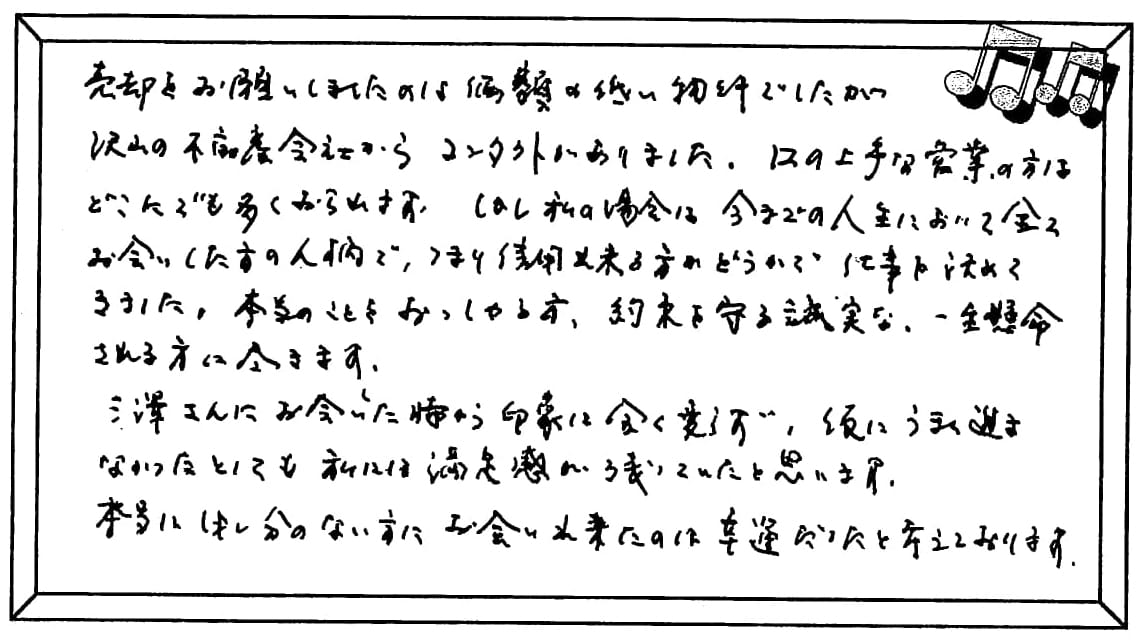 売却をお願いしましたのは価額の低い物件でしたが
沢山の不動産会社から コンタクトがありました。口の上手な営業の方は
どこにでも多くおられます。しかし私の場合は今までの人生において全て
お会いした方の人柄で、つまり信用出来る方かどうかで 仕事を決めて
きました。本当のことをおっしゃる方、約束を守る誠実な、一生懸命
される方に尽きます。
三澤さんにお会いした時から印象は全く変らず、仮にうまく進ま
なかったとしても私には満足感が残っていたと思います。
本当に申し分のない方にお会い出来たのは幸運だったと考えております。